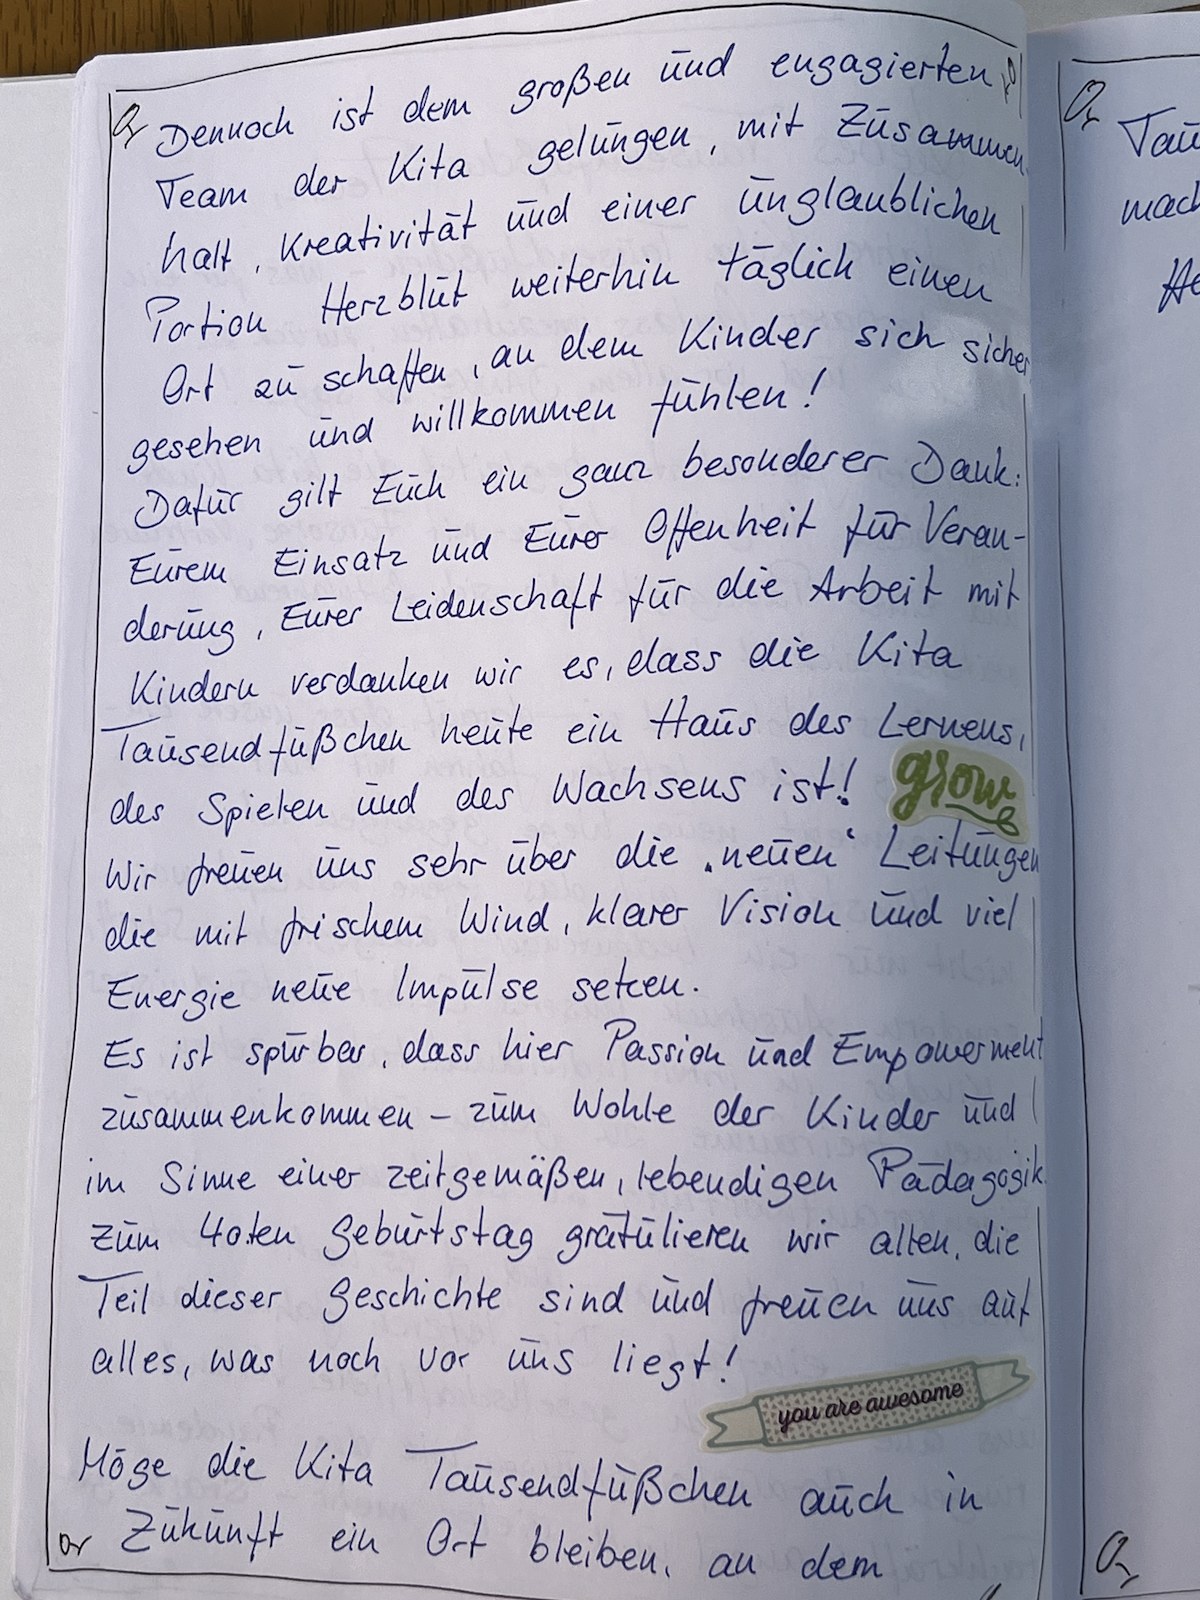 Dennoch ist dem großen und engagierten
Team der Kita gelungen, mit Zusammen
halt, Kreativität und einer unglaublichen
Portion Herzblut weiterhin täglich einen
Ort zu schaffen, an dem Kinder sich sicher
gesehen und willkommen fühlen!
Dafür gilt Euch ein ganz besonderer Dank:
Eurem Einsatz und Eurer Offenheit für Verän-
derung, Eurer Leidenschaft für die Arbeit mit
Kindern verdanken wir es, dass die Kita
Tausendfüßchen heute ein Haus des Lernens,
des Spielen und des Wachsens ist!
grow
Wir freuen uns sehr über die "neuen" Leitungen
die mit frischem Wind, klarer Vision und viel
Energie neue Impulse setzen.
Es ist spürbar, dass hier Passion und Empowerment
zusammenkommen – zum Wohle der Kinder und
im Sinne einer zeitgemäßen, lebendigen Pädagogik
Zum 40.ten Geburtstag gratulieren wir allen, die
Teil dieser Geschichte sind und freuen uns auf
alles, was noch vor uns liegt!
you are awesome
Möge die Kita Tausendfüßchen auch in
Zukunft ein Ort bleiben, an dem
Tau
mach
He